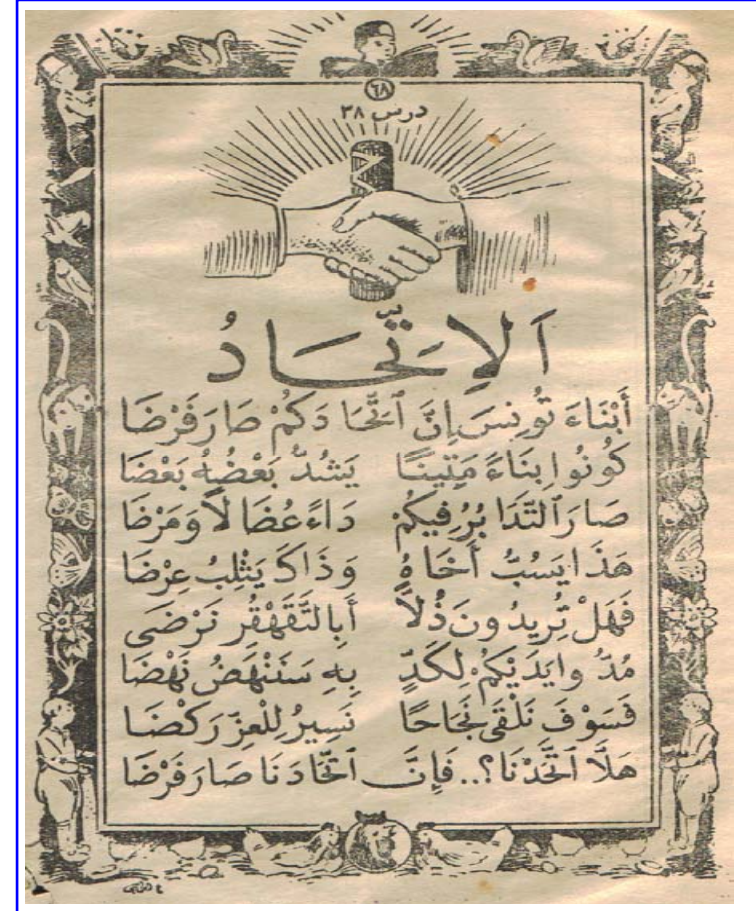 ٦٨
درس ٣٨
اَلاِتِّحَادُ
أَبْنَاءَ تُونِسَ إِنَّ ٱتِّحَادَكُمْ صَارَ فَرْضَا
كُونُوا بِنَاءً مَتِينًا يَشُدُّ بَعْضُهُ بَعْضَا
صَارَ ٱلتَّدَابُرُ فِيكُمْ دَاءً عُضَالاً وَمَرْضَا
هَذَا يَسُبُّ أَخَاهُ وَذَاكَ يَثْلِبُ عِرْضَا
فَهَلْ تُرِيدُونَ ذُلاًّ أَبِالتَّقَهْقُرِ نَرْضَى
مُدُّوا يَدَيْكُمْ لِكَدٍّ بِهِ سَنَنْهَضُ نَهْضَا
فَسَوْفَ نَلْقَى نَجَاحًا نَسِيرُ لِلْعِزِّ رَكْضَا
هَلاَّ ٱتَّحَدْنَا؟.. فَإِنَّ ٱتِّحَادَنَا صَارَ فَرْضَا